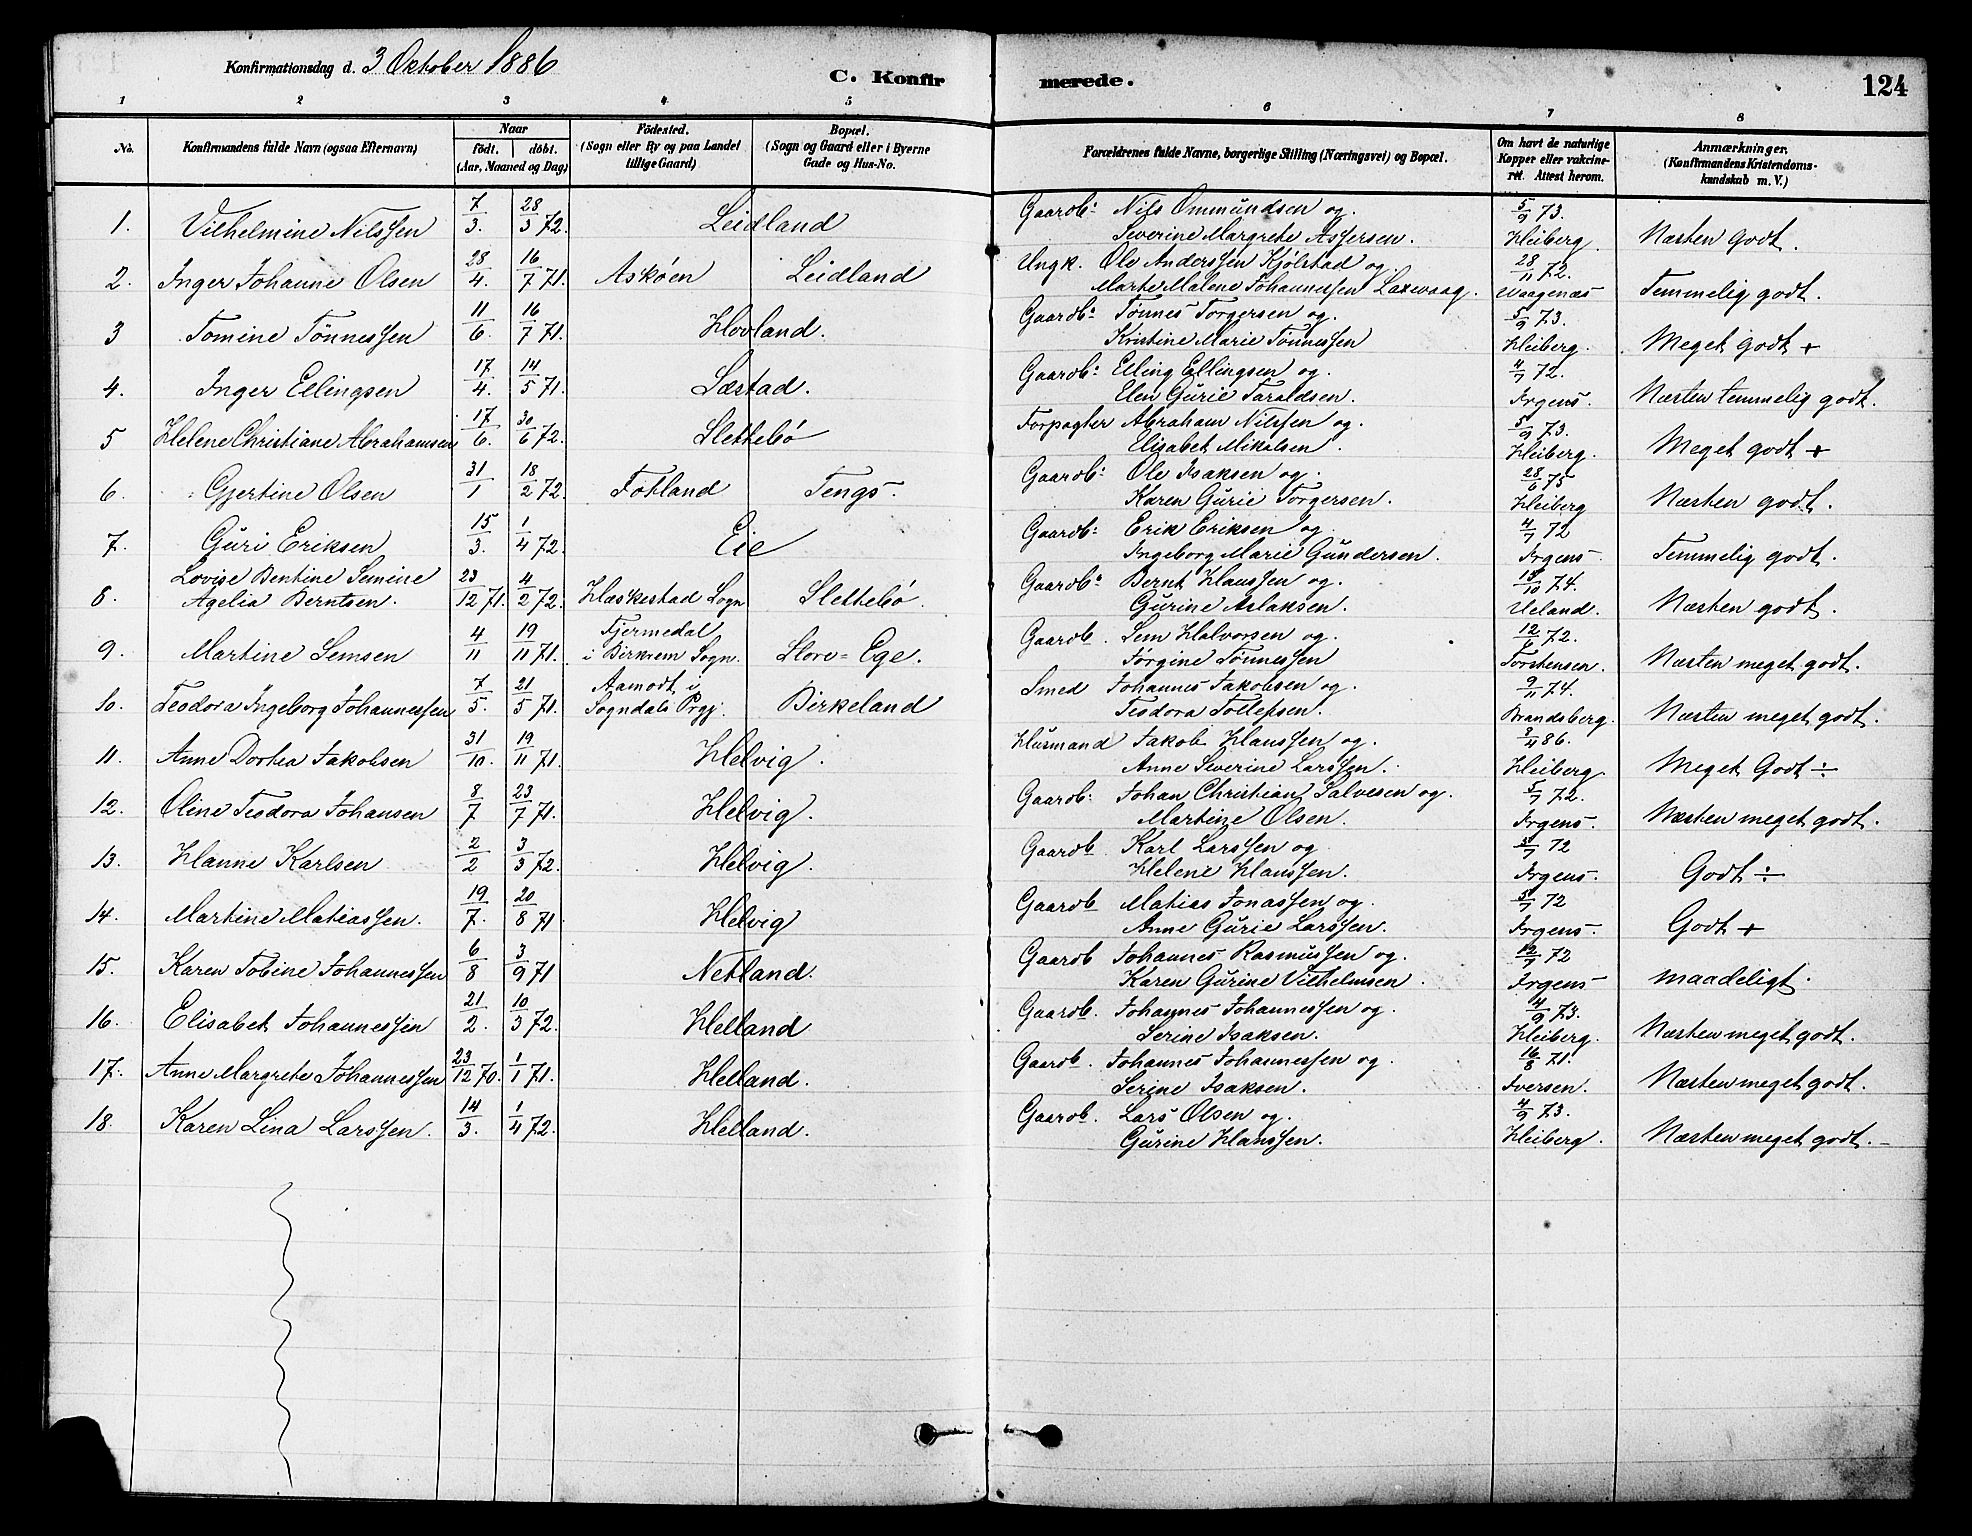 Konfirmationsdag d. 3 Oktober 1886
C. Konfirmerede.
124
1 2 3 4 5 6 7 8
No. Konfirmandens fulde Navn (ogsaa Efternavn) Naar födt. döbt. (Aar, Maaned og Dag) Födested. (Sogn eller By og paa Landet tillige Gaard) Bopæl. (Sogn og Gaard eller i Byerne Gade og Hus-No. Forældrenes fulde Navne, borgerlige Stilling (Næringsvei) og Bopæl. Om havt de naturlige Kopper eller vakcineret. Attest herom. Anmærkninger. (Konfirmandens Kristendomskundskab m. V.)
1. Vilhelmine Nilssen 7/3. 28/3 72. Leidland Gaardb: Nils Ommundsen og 5/9 73.
Severine Margrete Assersen. Heiberg. Næsten godt.
2. Inger Johanne Olsen 28/4. 16/7 71. Askøen Leidland Ungk. Ole Anderssen Kjølstad og 28/11 72.
Marte Malene Johannessen Laxevaag. Waagenæs Temmelig godt.
3 Tomine Tønnessen 11/6. 16/7 71. Hovland. Gaardb: Tønnes Torgersen og. 5/9 73.
Kristine Marie Tønnessen Heiberg. Meget godt +
4. Inger Ellingsen 17/4. 14/5 71. Sæstad. Gaardb: Elling Ellingsen og. 4/7 72.
Elen Gurie Taraldsen. Irgens. Næsten temmelig godt.
5 Helene Christiane Abrahamsen 17/6. 30/6 72. Slettebø Forpagter Abraham Nilssen og. 5/9 73.
Elisabet Mikalsen. Heiberg. Meget godt +
6. Gjertine Olsen 31/1 18/2 72. Fotland Tengs. Gaardb: Ole Isaksen og. 28/6 75
Karen Gurie Torgersen. Heiberg Næsten godt.
7. Guri Eriksen 15/3. 1/4 72. Eie Gaardb: Erik Eriksen og. 4/7 72
Ingeborg Marie Gundersen. Irgens. Temmelig godt.
8. Lovise Bentine Semine 23/12 71. 4/2 72. Hæskestad Sogn Slettebø. Gaardb: Bernt Hanssen og. 15/10 74.
Agelia Berntsen. Gurine Aslaksen. Ueland. Næsten godt.
9. Martine Semsen 4/11 19/11 71. Tjermedal Store=Ege. Gaardb. Sem Halvorsen og. 12/6 72.
i Birkrem Sogn. Jørgine Tønnessen Torstensen. Næsten meget godt.
10. Teodora Ingeborg Johannessen 7/5. 21/5 71. Aamodt i Birkeland Smed Johannes Jakobsen og. 9/11 74.
Sogndals Prgj. Teodora Tollefsen. Brandsberg. Næsten meget godt.
11. Anne Dortea Jakobsen 31/10. 19/11 71. Helvig. Husmand Jakob Hanssen og. 86.
Anne Severine Larssen. Heiberg. Meget Godt ÷
12. Oline Teodora Johansen 8/7 23/7 71. Helvig. Gaardb: Johan Christian Salvesen og. 5/7 72.
Martine Olsen. Irgens. Næsten meget godt.
13. Hanne Karlsen 2/2 3/3 72. Helvig. Gaardb. Karl Larssen og 72
Helene Hanssen. Irgens. Godt ÷
14. Martine Matiassen. 19/7. 20/8 71 Helvig Gaardb Matias Jonassen og. 72
Anne Gurie Larssen. Irgens. Godt +
15. Karen Tobine Johannessen 6/8 3/9 71 Netland. Gaardb Johannes Rasmussen og. 12/7 72
Karen Gurine Vilhelmsen. Irgens maadeligt.
16. Elisabet Johannessen 21/2. 10/3 72. Helland Gaardb. Johannes Johannessen og. 4/9 73.
Serine Isaksen. Heiberg. Næsten meget godt.
17. Anne Margrete Johannessen 23/12 70. 1/1 71. Helland. Gaardb. Johannes Johannessen og. 16/8 71.
Serine Isaksen. Iversen. Næsten meget godt.
18. Karen Lina Larssen. 14/3. 1/4 72. Helland. Gaardb. Lars Olsen og. 4/9 73.
Gurine Hanssen. Heiberg. Næsten meget godt.